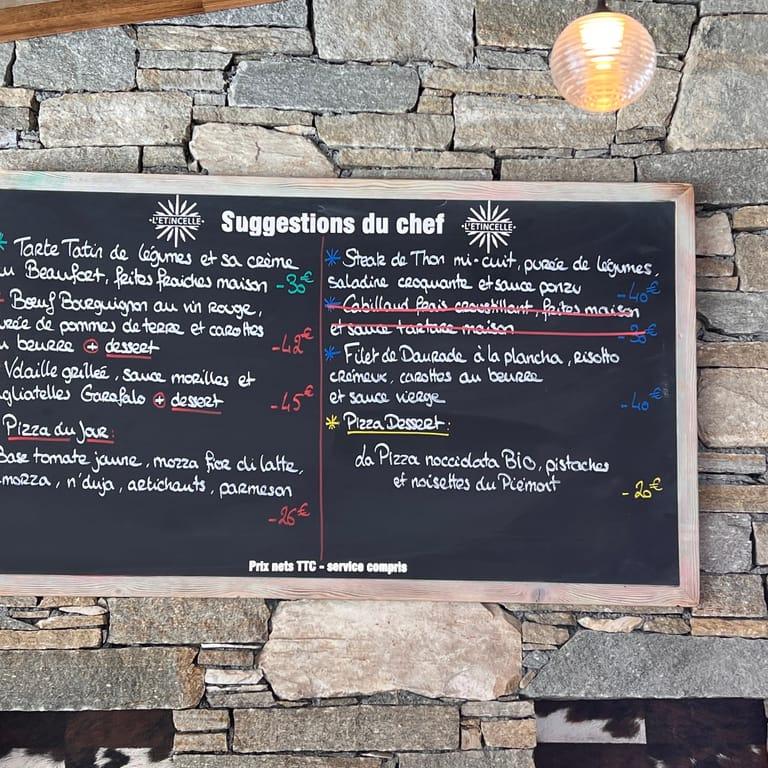 L'ETINCELLE
Suggestions du chef
L'ETINCELLE
Tarte Tatin de légumes et sa crème
au Beaufort, frites fraiches maison -30€
Bœuf Bourguignon au vin rouge,
purée de pommes de terre et carottes
au beurre + dessert -42€
Volaille grillée, sauce morilles et
tagliatelles Garofalo + dessert -45€
Pizza du Jour:
Base tomate jaune, mozza fior di latte,
n'duja, artichauts, parmesan
-26€
* Steak de Thon mi-cuit, purée de légumes,
saladine croquante et sauce ponzu -40€
* Cabillaud frais croustillant, frites maison
et sauce tartare maison
* Filet de Daurade à la plancha, risotto
crémeux, carottes au beurre
et sauce vierge -40€
* Pizza Dessert:
La Pizza nocciolata BIO, pistaches
et noisettes du Piémont -20€
Prix nets TTC - service compris